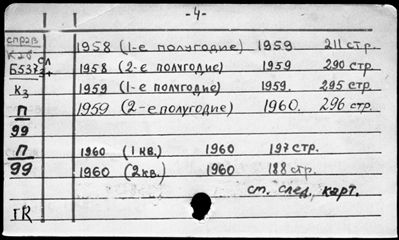 -4-
справ
К26
1958 (1-е полугодие) 1959 211 стр.
Б537 сл 2+
1958 (2-е полугодие) 1959 290 стр.
Кз
1959 (1-е полугодие) 1959. 295 стр.
П
1959 (2-е полугодие) 1960. 296 стр.
99
П
1960 (1 кв.) 1960 197 стр.
99
1960 (2 кв.) 1960 188 стр.
см. след. карт.
ГR